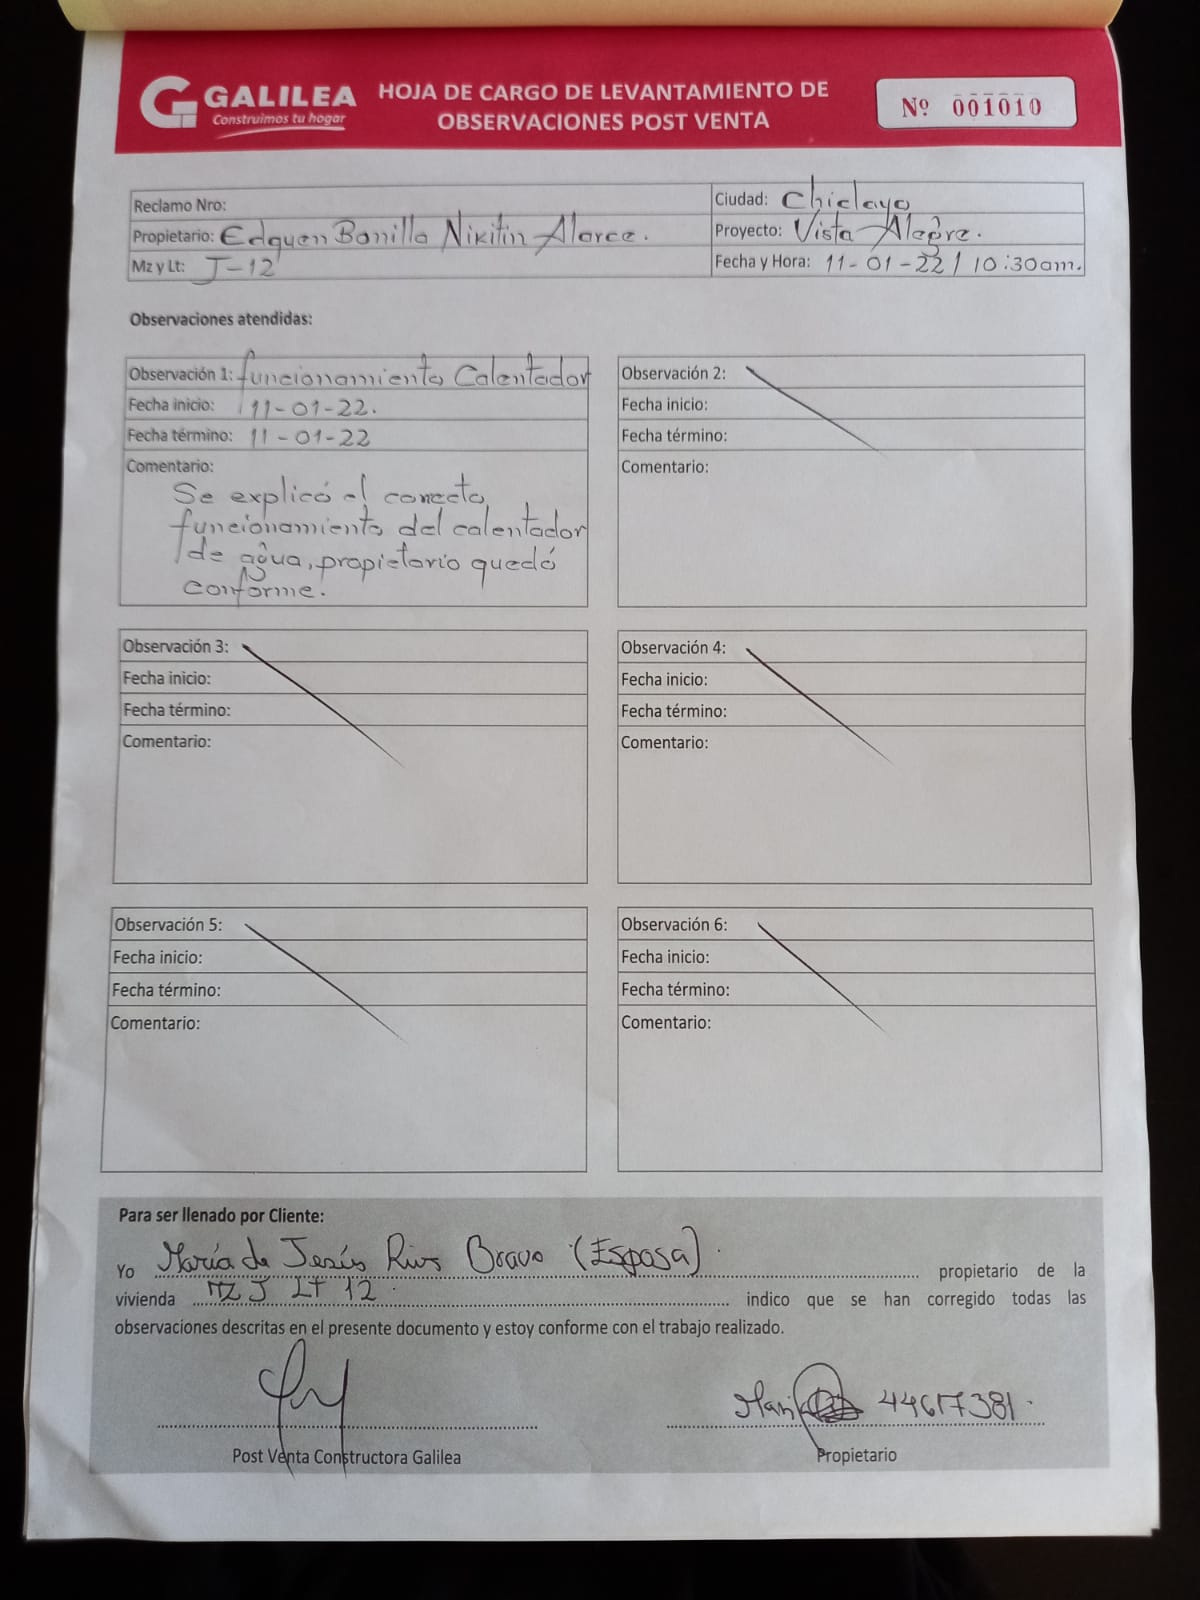 GALILEA
Construimos tu hogar
HOJA DE CARGO DE LEVANTAMIENTO DE
OBSERVACIONES POST VENTA
Nº 001010
Reclamo Nro:
Ciudad: Chiclayo
Propietario: Edquen Bonilla Nikitin Alarce.
Proyecto: Vista Alegre.
Mz y Lt: J-12
Fecha y Hora: 11-01-22 / 10:30am.
Observaciones atendidas:
Observación 1: funcionamiento Calentador
Fecha inicio: 11-01-22.
Fecha término: 11-01-22
Comentario:
Se explicó el correcto
funcionamiento del calentador
de agua, propietario quedó
conforme.
Observación 2:
Fecha inicio:
Fecha término:
Comentario:
Observación 3:
Fecha inicio:
Fecha término:
Comentario:
Observación 4:
Fecha inicio:
Fecha término:
Comentario:
Observación 5:
Fecha inicio:
Fecha término:
Comentario:
Observación 6:
Fecha inicio:
Fecha término:
Comentario:
Para ser llenado por Cliente:
Yo María de Jesús Rivs Bravo (Esposa). propietario de la
vivienda MZ J LT 12. indico que se han corregido todas las
observaciones descritas en el presente documento y estoy conforme con el trabajo realizado.
44617381.
Post Venta Constructora Galilea
Propietario